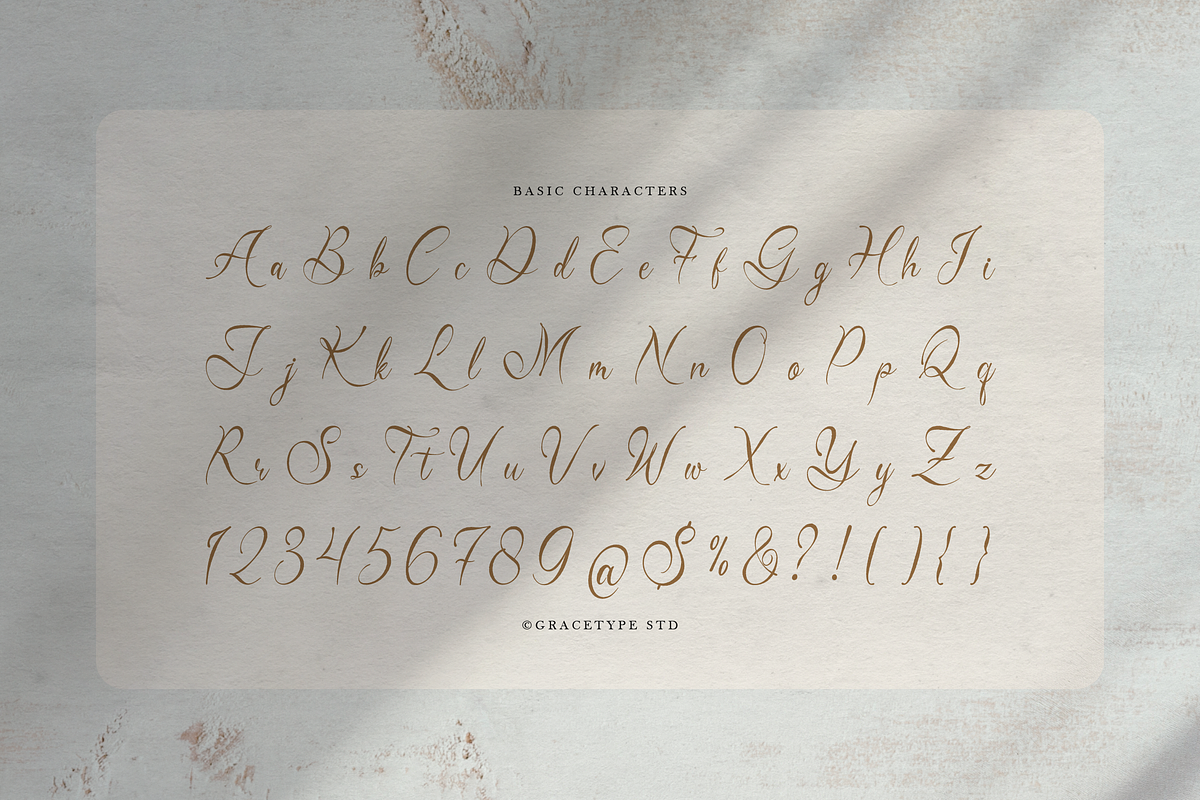 BASIC CHARACTERS
A a B b C c D d E e F f G g H h I i
J j K k L l M m N n O o P p Q q
R r S s T t U u V v W w X x Y y Z z
1 2 3 4 5 6 7 8 9 @ $ % & ? ! ( ) { }
©GRACETYPE STD